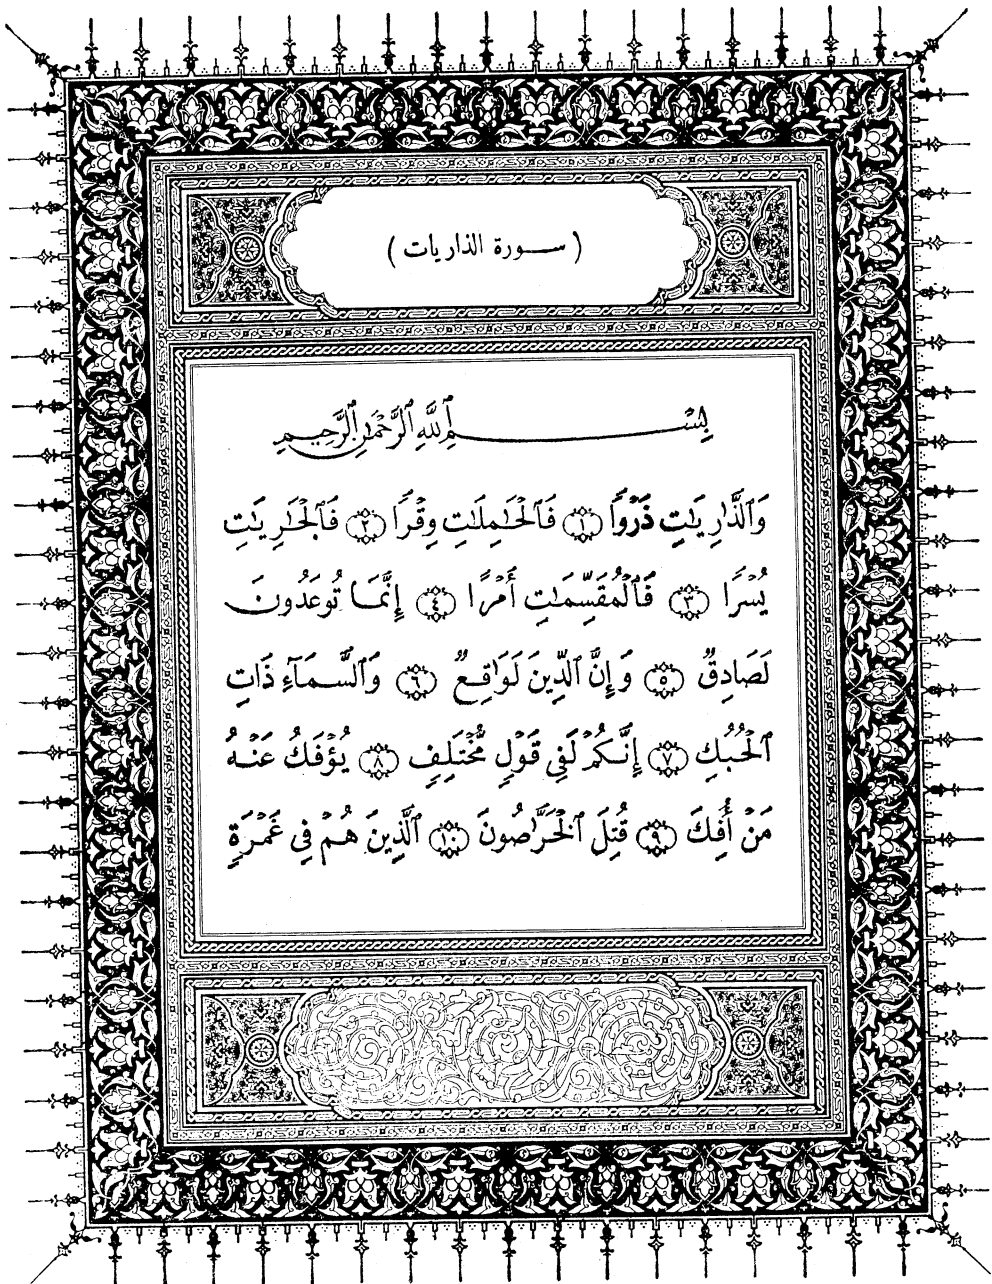 ( ســورة الذاريات )
بِسْــــــــمِ ٱللَّهِ ٱلرَّحْمَٰنِ ٱلرَّحِيمِ
وَٱلذَّٰرِيَٰتِ ذَرْوًا ﴿١﴾ فَٱلْحَٰمِلَٰتِ وِقْرًا ﴿٢﴾ فَٱلْجَٰرِيَٰتِ
يُسْرًا ﴿٣﴾ فَٱلْمُقَسِّمَٰتِ أَمْرًا ﴿٤﴾ إِنَّمَا تُوعَدُونَ
لَصَادِقٌ ﴿٥﴾ وَإِنَّ ٱلدِّينَ لَوَٰقِعٌ ﴿٦﴾ وَٱلسَّمَآءِ ذَاتِ
ٱلْحُبُكِ ﴿٧﴾ إِنَّكُمْ لَفِى قَوْلٍ مُّخْتَلِفٍ ﴿٨﴾ يُؤْفَكُ عَنْهُ
مَنْ أُفِكَ ﴿٩﴾ قُتِلَ ٱلْخَرَّٰصُونَ ﴿١٠﴾ ٱلَّذِينَ هُمْ فِى غَمْرَةٍ